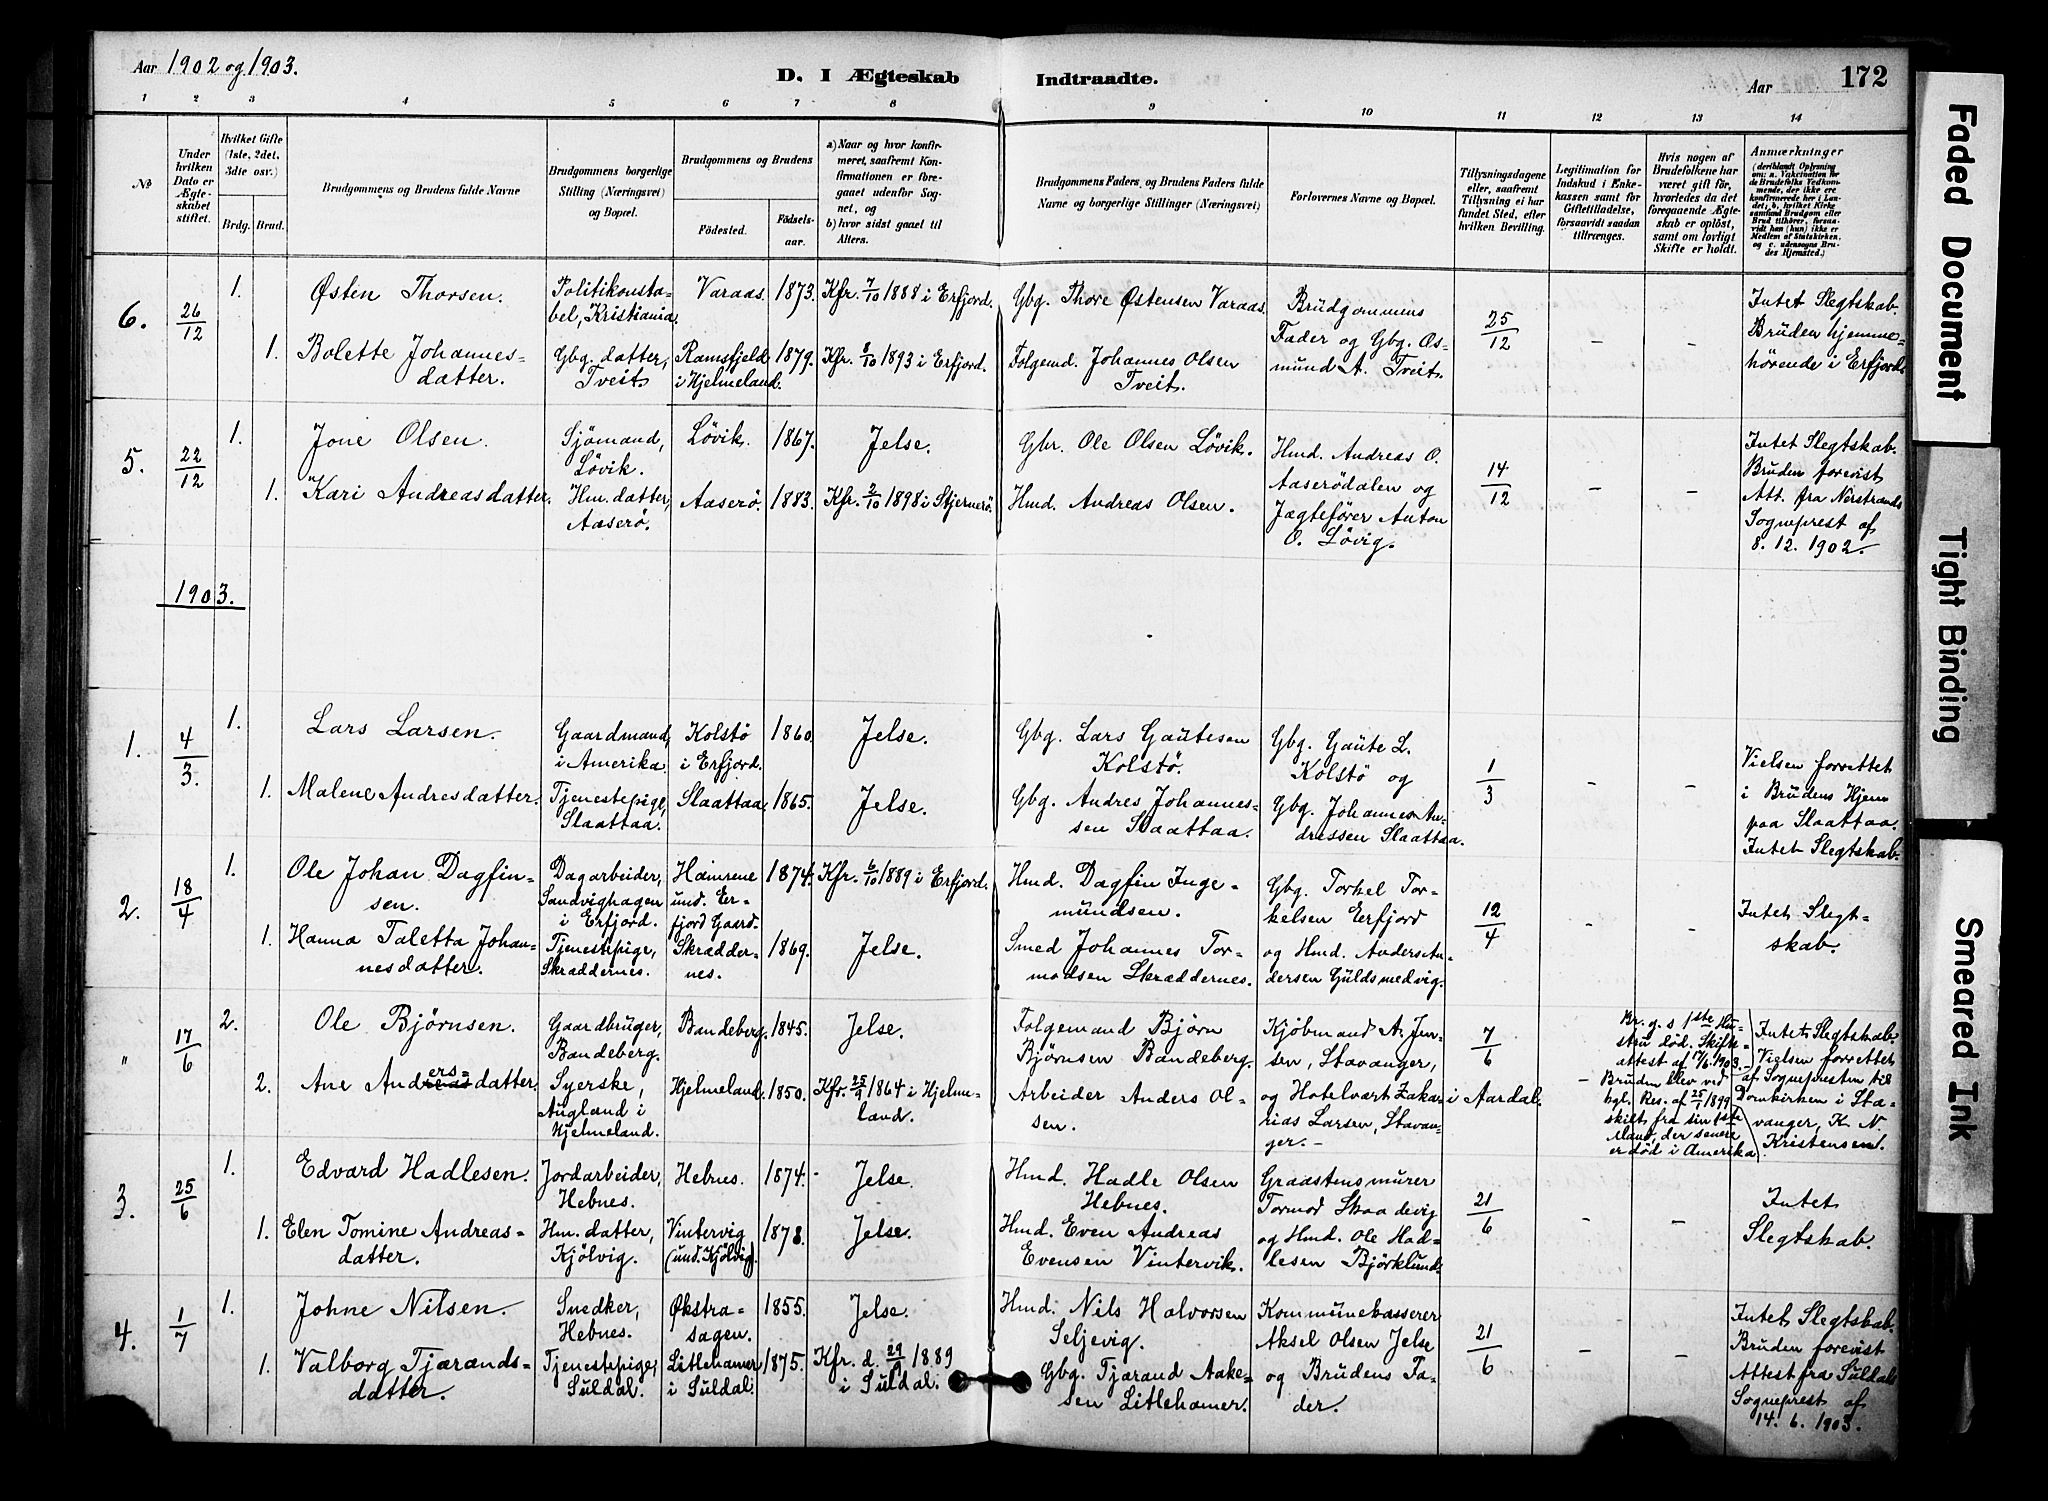 Aar 1902 og 1903.
D. I Ægteskab Indtraadte.
Aar 172
1 2 3 4 5 6 7 8 9 10 11 12 13 14
No
Under hvilken Dato er Ægteskabet stiftet.
Hvilket Gifte (1ste, 2det, 3die osv.)
Brdg. Brud.
Brudgommens og Brudens fulde Navne
Brudgommens borgerlige Stilling (Næringsvei) og Bopæl.
Brudgommens og Brudens
Födested. Födsels-aar.
a) Naar og hvor konfirmeret, saafremt Konfirmationen er foregaaet udenfor Sognet, og
b) hvor sidst gaaet til Alters.
Brudgommens Faders og Brudens Faders fulde Navne og borgerlige Stillinger (Næringsvei)
Forlovernes Navne og Bopæl.
Tillysningsdagene eller, saafremt Tillysning ei har fundet Sted, efter hvilken Bevilling.
Legitimation for Indskud i Enkekassen samt for Giftetilladelse, forsaavidt saadan tiltrænges.
Hvis nogen af Brudefolkene har været gift för, hvorledes da det foregaaende Ægteskab er oplöst, samt om lovligt Skifte er holdt.
Anmærkninger
(deriblandt Oplysning om: a. Vakcination for de Brudefolks Vedkommende, der ikke ere konfirmerede her i Landet, b. hvilket Kirkesamfund Brudgom eller Brud tilhörer, forsaavidt han (hun) ikke er Medlem af Statskirken, og c. udensogns Brudes Hjemsted.)
6. 26/12
1. Østen Thorsen. Politikonsta-
bel, Kristiania. Varaas. 1873. Kfr. 7/10 1888 i Erfjord. Gbg. Thore Østensen Varaas.
1. Bolette Johannes-
datter. Gbg. datter,
Tveit. Ramsfjeld
i Hjelmeland. 1879. Kfr. 8/10 1893 i Erfjord. Folgemd. Johannes Olsen
Tveit.
Brudgommens
Fader og Gbg. Os-
mund A. Tveit.
25/12 – –
Intet Slegtskab.
Bruden hjemme-
hørende i Erfjord.
5. 22/12
1. Jone Olsen. Sjømand,
Løvik. Løvik. 1867. Jelse. Gbr. Ole Olsen Løvik.
1. Kari Andreasdatter. Hm. datter,
Aaserø. Aaserø. 1883. Kfr. 2/10 1898 i Stjernerö. Hmd. Andreas Olsen.
Hmd. Andreas O.
Aaserødalen og
Jægtefører Anton
O. Løvig.
14/12 – –
Intet Slegtskab.
Bruden forevist
Att. fra Nerstrands
Sogneprest af
8. 12. 1902.
1903.
1. 4/3
1. Lars Larsen. Gaardmand,
i Amerika. Kolstø
i Erfjord. 1860. Jelse. Gbg. Lars Gautesen
Kolstö.
1. Malene Andresdatter. Tjenestepige,
Slaattaa. Slaattaa. 1865. Jelse. Gbg. Andres Johannes-
sen Slaattaa.
Gbg. Gaute L.
Kolstø og
Gbg. Johannes An-
dressen Slaattaa.
1/3 – –
Vielsen forrettet
i Brudens Hjem
paa Slaattaa.
Intet Slegtskab.
2. 18/4
1. Ole Johan Dagfin-
sen. Dagarbeider,
Sandvighagen
i Erfjord. Hamrene
und. Er-
fjord Gaard. 1874. Kfr. 6/10 1889 i Erfjord. Hmd. Dagfin Inge-
mundsen.
1. Hanna Taletta Johan-
nesdatter. Tjenestepige,
Skræddernes. Skrædder-
nes. 1869. Jelse. Smed Johannes Tor-
modsen Skræddernes.
Gbg. Torkel Tor-
kelsen Erfjord
og Hmd. Anders An-
dersen Guldsmedvig.
12/4 – –
Intet Slegt-
skab.
" 17/6
2. Ole Bjørnsen. Gaardbruger,
Bandeberg. Bandeberg. 1845. Jelse. Folgemand Bjørn
Bjørnsen Bandeberg.
2. Ane Andersdatter. Syerske,
Augland i
Hjelmeland. Hjelmeland. 1850. Kfr. 25/9 1864 i Hjelme-
land. Arbeider Anders Ol-
sen.
Kjøbmand A. Jen-
sen, Stavanger,
og Hotelvært Zaka-
rias Larsen, Stavan-
ger. –
7/6
i Aardal. –
Br. g. s 1ste Hu-
stru död. Skifte-
attest af 17/6 1903. –
Bruden blev ved
kgl. Res. af 25/1 1899
skilt fra sin 1ste
Mand, der senere
er död i Amerika.
Intet Slegtskab.
Vielsen forrettet
af Sognepresten til
Domkirken i Sta-
vanger, K. N.
Kristensen.
3. 25/6
1. Edvard Hadlesen. Jordarbeider,
Hebnes. Hebnes. 1874. Jelse. Hmd. Hadle Olsen
Hebnes.
1. Elen Tomine Andreas-
datter. Hm. datter,
Kjölvig. Vintervig
(und. Kjölvig). 1878. Jelse. Hmd. Even Andreas
Evensen Vintervik.
Graastensmurer
Tormod Skaadevig
og Hmd. Ole Had-
lesen Björklund.
21/6 – –
Intet
Slegtskab.
4. 1/7
1. Johne Nilsen. Snedker,
Hebnes. Økstra-
sagen. 1855. Jelse. Hmd. Nils Halvorsen
Seljevig.
1. Valborg Tjærands-
datter. Tjenestepige,
Suldal. Litlehamer
i Suldal. 1875. Kfr. d. 29/9 1889
i Suldal. Gbg. Tjærand Aake-
sen Litlehamer.
Kommunekasserer
Aksel Olsen Jelse
og Brudens Fa-
der.
21/6 – –
Intet Slegtskab.
Bruden forevist
Attest fra Suldals
Sogneprest af
14. 6. 1903.
Faded Document
Tight Binding
Smeared Ink